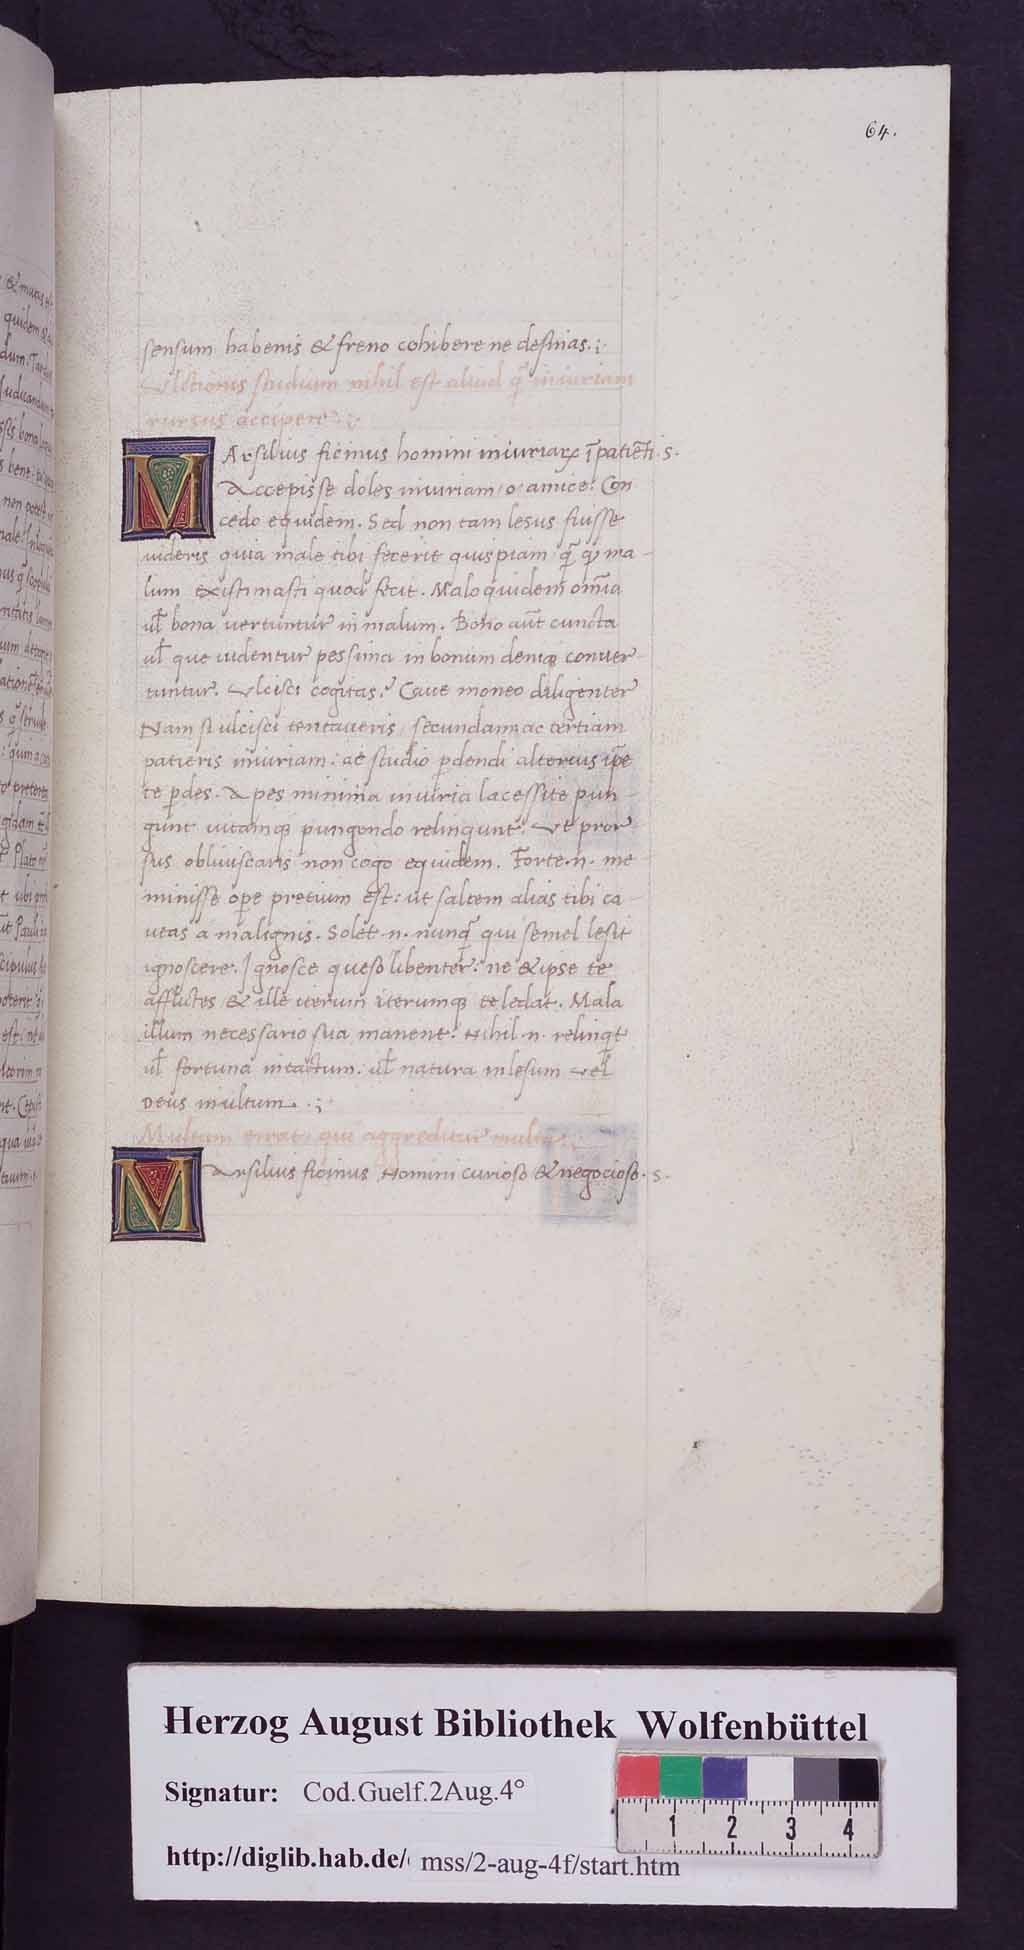 64.
sensum habenis & freno cohibere ne desinas.
Ulctionis studium nihil est aliud q̃ iniuriam
rursus accipere
MArsilius ficinus homini iniuriaꝝ ĩpatiẽti .s.
Accepisse doles iniuriam o amice: Con
cedo equidem. Sed non tam lesus fuisse
uideris quia male tibi fecerit quispiam q̃ ꝙ ma-
lum existimasti quod fecit. Malo quidem om̃ia
ul̃ bona uertuntur in malum. Bono aũt cuncta
ul̃ que uidentur pessima in bonum deniqꝫ conuer-
tuntur. Ulcisci cogitas? Caue moneo diligenter
Nam si ulcisci tentaueris, secundam ac tertiam
patieris iniuriam: ac studio ꝑdendi alterius ip̃e
te ꝑdes. Apes minima iniuria lacessite pun-
gunt uitamqꝫ pungendo relinqunt. Ut pror-
sus obliuiscaris non cogo equidem. Forte .n. me-
minisse ope pretium est: ut saltem alias tibi ca-
ueas a malignis. Solet .n. nunq̃ qui semel lesit
ignoscere. Ignosce queso libenter: ne & ipse te
afflictes & ille iterum iterumqꝫ te ledat. Mala
illum necessario sua manent. Nihil .n. relinqt
ul̃ fortuna intactum: ul̃ natura inlesum uel
Deus inultum.
Multum errat, qui aggreditur multa
MArsilius ficinus Homini curioso & negocioso .s.
Herzog August Bibliothek Wolfenbüttel
Signatur: Cod.Guelf.2Aug.4°
http://diglib.hab.de/ mss/2-aug-4f/start.htm
1 2 3 4